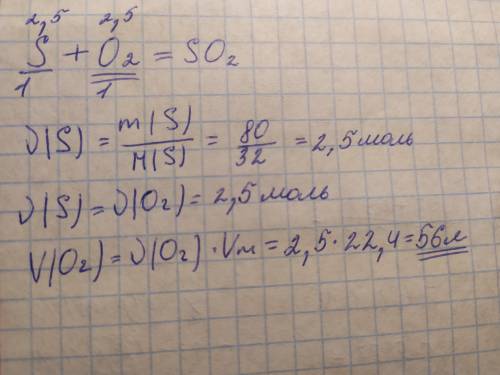 2,5 2,5
S + O₂ = SO₂
1 1
ν(S) = m(S)/M(S) = 80/32 = 2,5 моль
ν(S) = ν(O₂) = 2,5 моль
V(O₂) = ν(O₂) · Vm = 2,5 · 22,4 = 56л